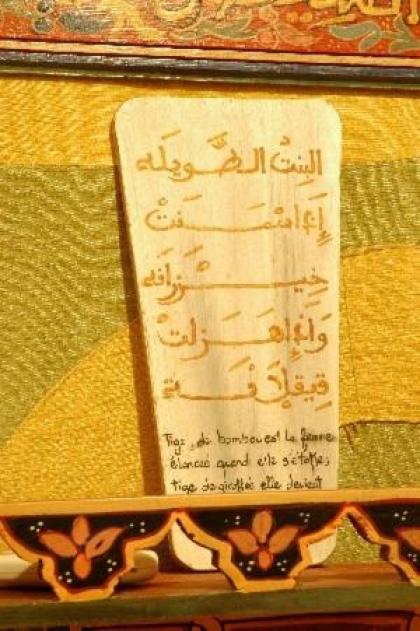 البِنتْ الطَّويلَه
إِذا سْمَـــنَتْ
خِيــــزْرَانَه
وَاذا هَزلَتْ
Tige, de bambou est la femme
élancée quand elle s'étoffe,
tige de giroflée elle devient